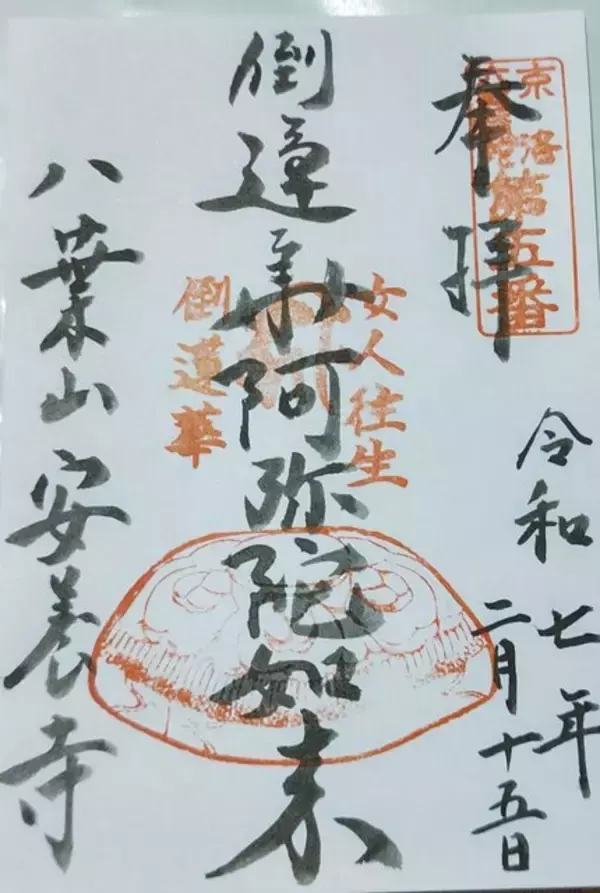 奉拝
京洛
六阿弥陀
第五番
令和七年
二月十五日
倒蓮華阿弥陀如来
女人往生
倒蓮華
八葉山安養寺